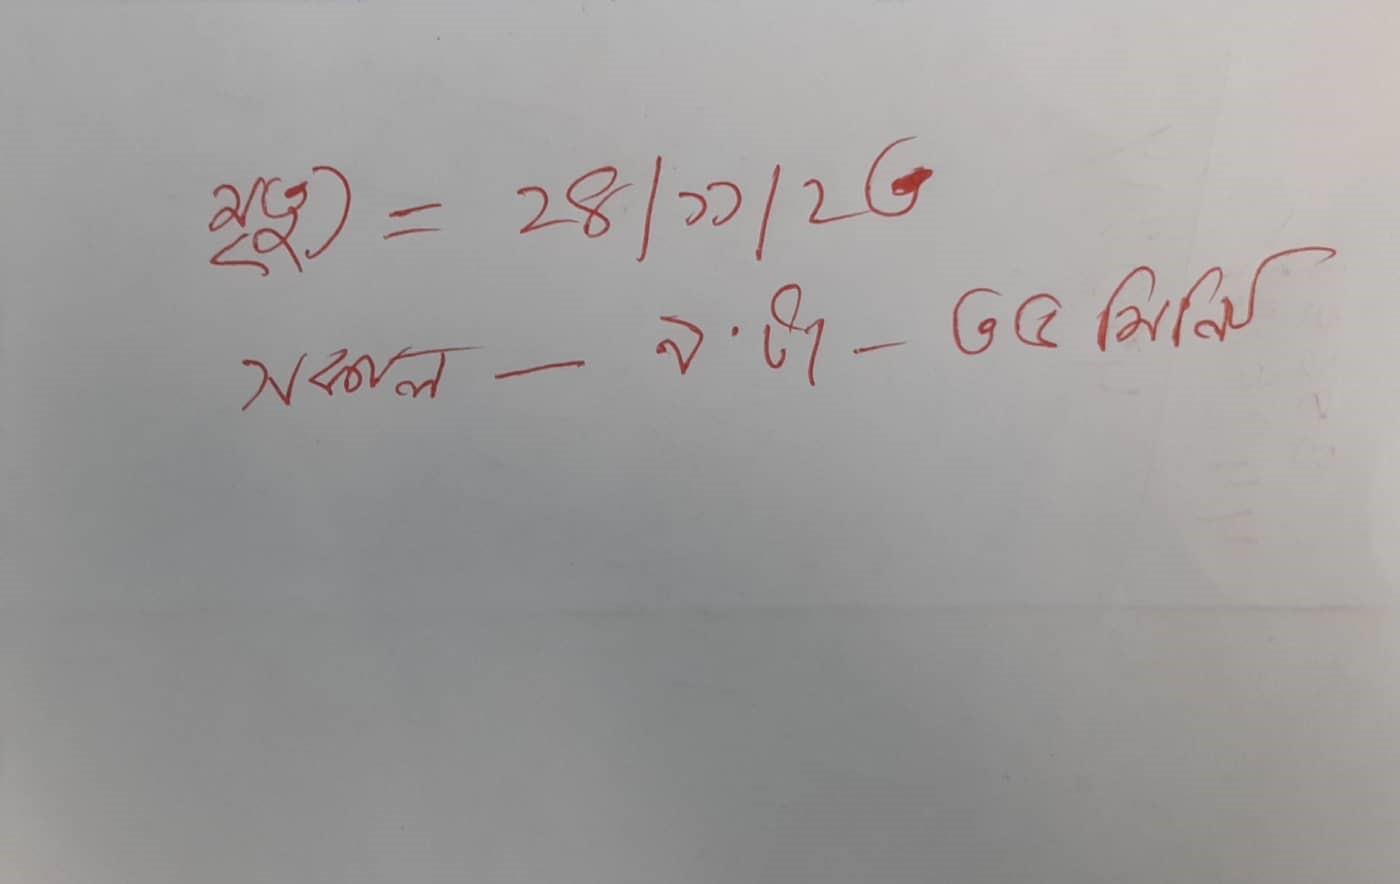 মৃত্যু = ২৪/১১/২৩
সকাল — ৯.টা – ৩৫ মিনিট